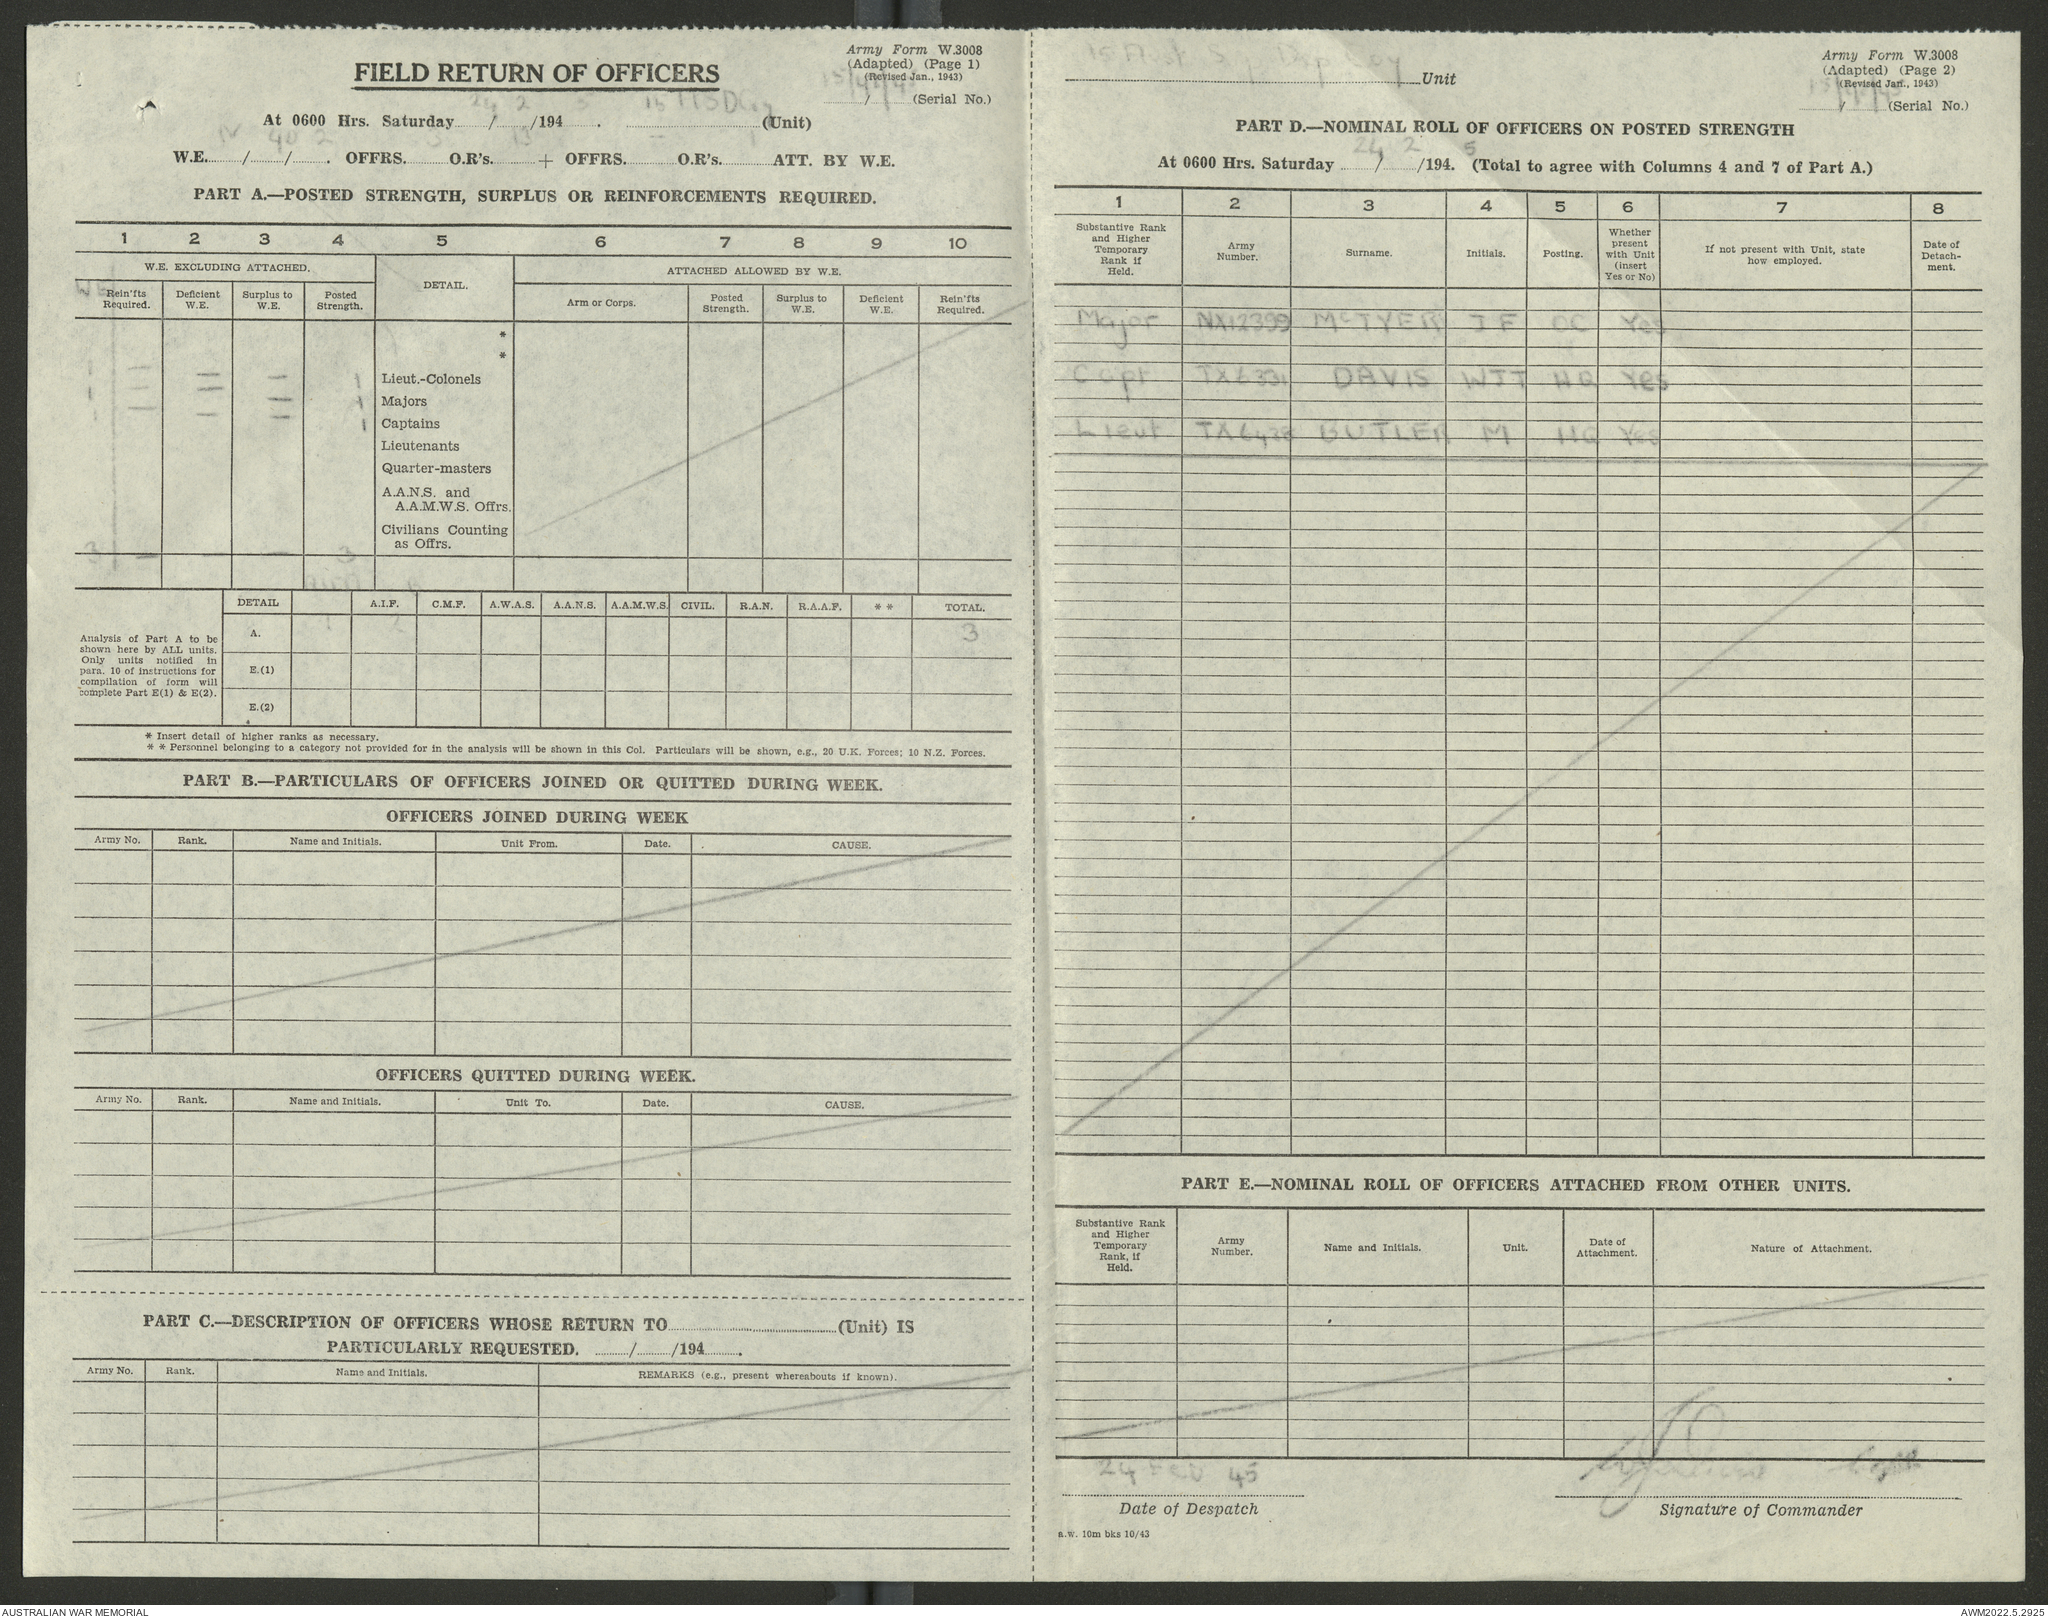 Army Form W.3008
(Adapted) (Page 1)
(Revised Jan., 1943)
FIELD RETURN OF OFFICERS
....../...... (Serial No.)
24 2 5
At 0600 Hrs. Saturday ....../....../194...... ...... (Unit)
IV 40 2 3 13 — 1
W.E. ....../....../...... OFFRS. ...... O.R's. ...... + OFFRS. ...... O.R's. ...... ATT. BY W.E.
PART A.—POSTED STRENGTH, SURPLUS OR REINFORCEMENTS REQUIRED.
1 2 3 4 5 6 7 8 9 10
W.E. EXCLUDING ATTACHED. DETAIL. ATTACHED ALLOWED BY W.E.
WE Rein'fts Required. Deficient W.E. Surplus to W.E. Posted Strength. Arm or Corps. Posted Strength. Surplus to W.E. Deficient W.E. Rein'fts Required.
*
*
1 — — — 1 Lieut.-Colonels
1 — — — 1 Majors
1 — — — 1 Captains
Lieutenants
Quarter-masters
A.A.N.S. and
A.A.M.W.S. Offrs.
Civilians Counting
as Offrs.
3 — — — 3
DETAIL A.I.F. C.M.F. A.W.A.S. A.A.N.S. A.A.M.W.S. CIVIL. R.A.N. R.A.A.F. * * TOTAL.
Analysis of Part A to be
shown here by ALL units.
Only units notified in
para. 10 of instructions for
compilation of form will
complete Part E(1) & E(2).
A. 1 2 3
E.(1)
E.(2)
* Insert detail of higher ranks as necessary.
* * Personnel belonging to a category not provided for in the analysis will be shown in this Col. Particulars will be shown, e.g., 20 U.K. Forces; 10 N.Z. Forces.
PART B.—PARTICULARS OF OFFICERS JOINED OR QUITTED DURING WEEK.
OFFICERS JOINED DURING WEEK
Army No. Rank. Name and Initials. Unit From. Date. CAUSE.
OFFICERS QUITTED DURING WEEK.
Army No. Rank. Name and Initials. Unit To. Date. CAUSE.
PART C.—DESCRIPTION OF OFFICERS WHOSE RETURN TO ...... (Unit) IS
PARTICULARLY REQUESTED. ....../....../194......
Army No. Rank. Name and Initials. REMARKS (e.g., present whereabouts if known).
Army Form W.3008
(Adapted) (Page 2)
(Revised Jan., 1943)
15 Aust Sup Dep Coy Unit
....../...... (Serial No.)
PART D.—NOMINAL ROLL OF OFFICERS ON POSTED STRENGTH
24 2 5
At 0600 Hrs. Saturday ....../....../194. (Total to agree with Columns 4 and 7 of Part A.)
1 2 3 4 5 6 7 8
Substantive Rank and Higher Temporary Rank if Held. Army Number. Surname. Initials. Posting. Whether present with Unit (insert Yes or No) If not present with Unit, state how employed. Date of Detach-ment.
Major NX12399 McTYER J F OC Yes
Capt TX6331 DAVIS WJT HQ Yes
Lieut BUTLER M HQ Yes
PART E.—NOMINAL ROLL OF OFFICERS ATTACHED FROM OTHER UNITS.
Substantive Rank and Higher Temporary Rank, if Held. Army Number. Name and Initials. Unit. Date of Attachment. Nature of Attachment.
24 Feb 45
Date of Despatch Signature of Commander
a.w. 10m bks 10/43
AUSTRALIAN WAR MEMORIAL AWM2022.5.2925